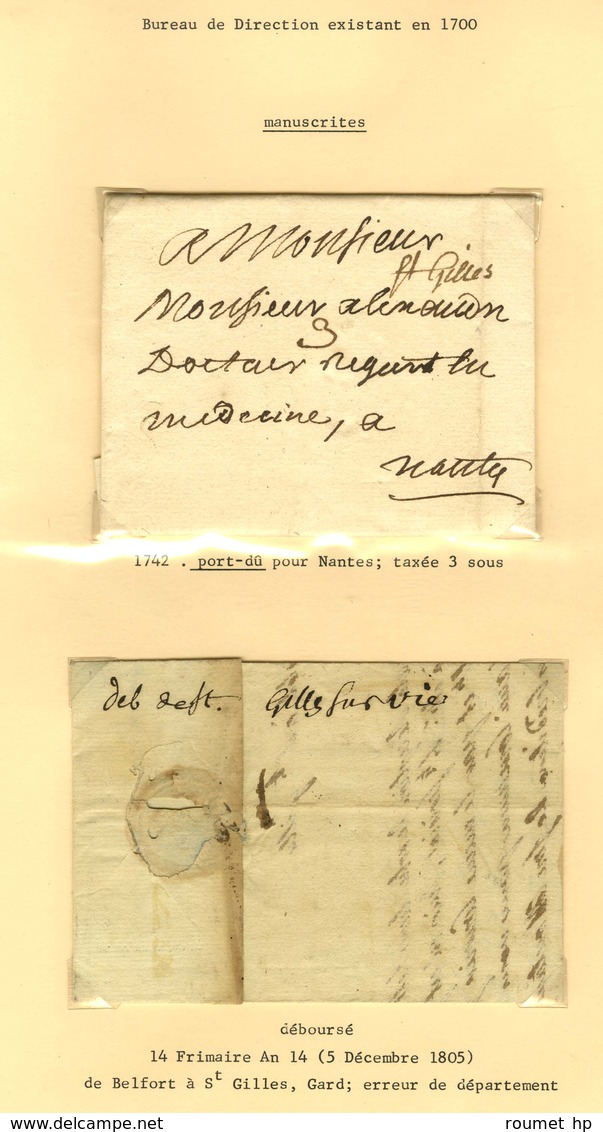 Bureau de Direction existant en 1700
manuscrites
A Monsieur
St Gilles
Monsieur
3
Docteur regent En
medecine, a
nantes
1742 . port-dû pour Nantes; taxée 3 sous
deb de st. Gilles sur vie
déboursé
14 Frimaire An 14 (5 Décembre 1805)
de Belfort à St Gilles, Gard; erreur de département
roumet hp